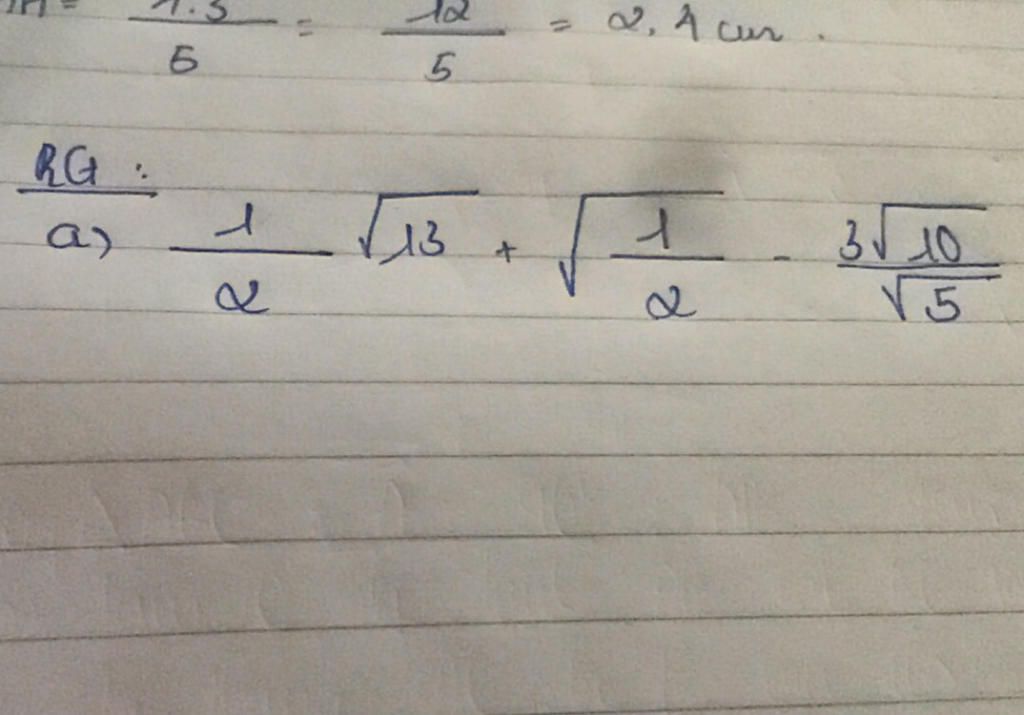 5 = 12/5 = 2,4 cm.
RG:
a) 1/2 √13 + √(1/2) - 3√10/√5